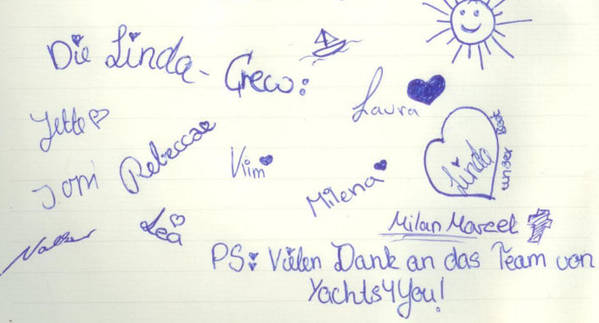 Die Linda-Crew:
Jette
Laura
Joni
Rebeccae
Milena
Linda
unser Boot
Lea
Milan Marcel
PS: Vielen Dank an das Team von
Yachts4You!